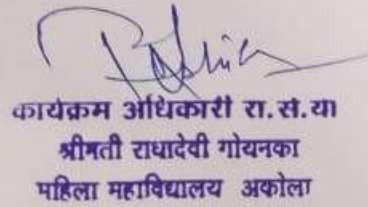 कार्यक्रम अधिकारी रा. से. यो
श्रीमती राधादेवी गोयनका
महिला महाविद्यालय अकोला